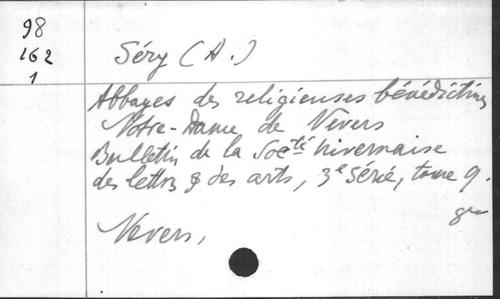 98
162
1
Séry (A.)
Abbayes des religieuses bénédictines
Notre-Dame de Nevers
Bulletin de la Socté nivernaise
des lettres & des arts, 3e série, tome 9.
Nevers,